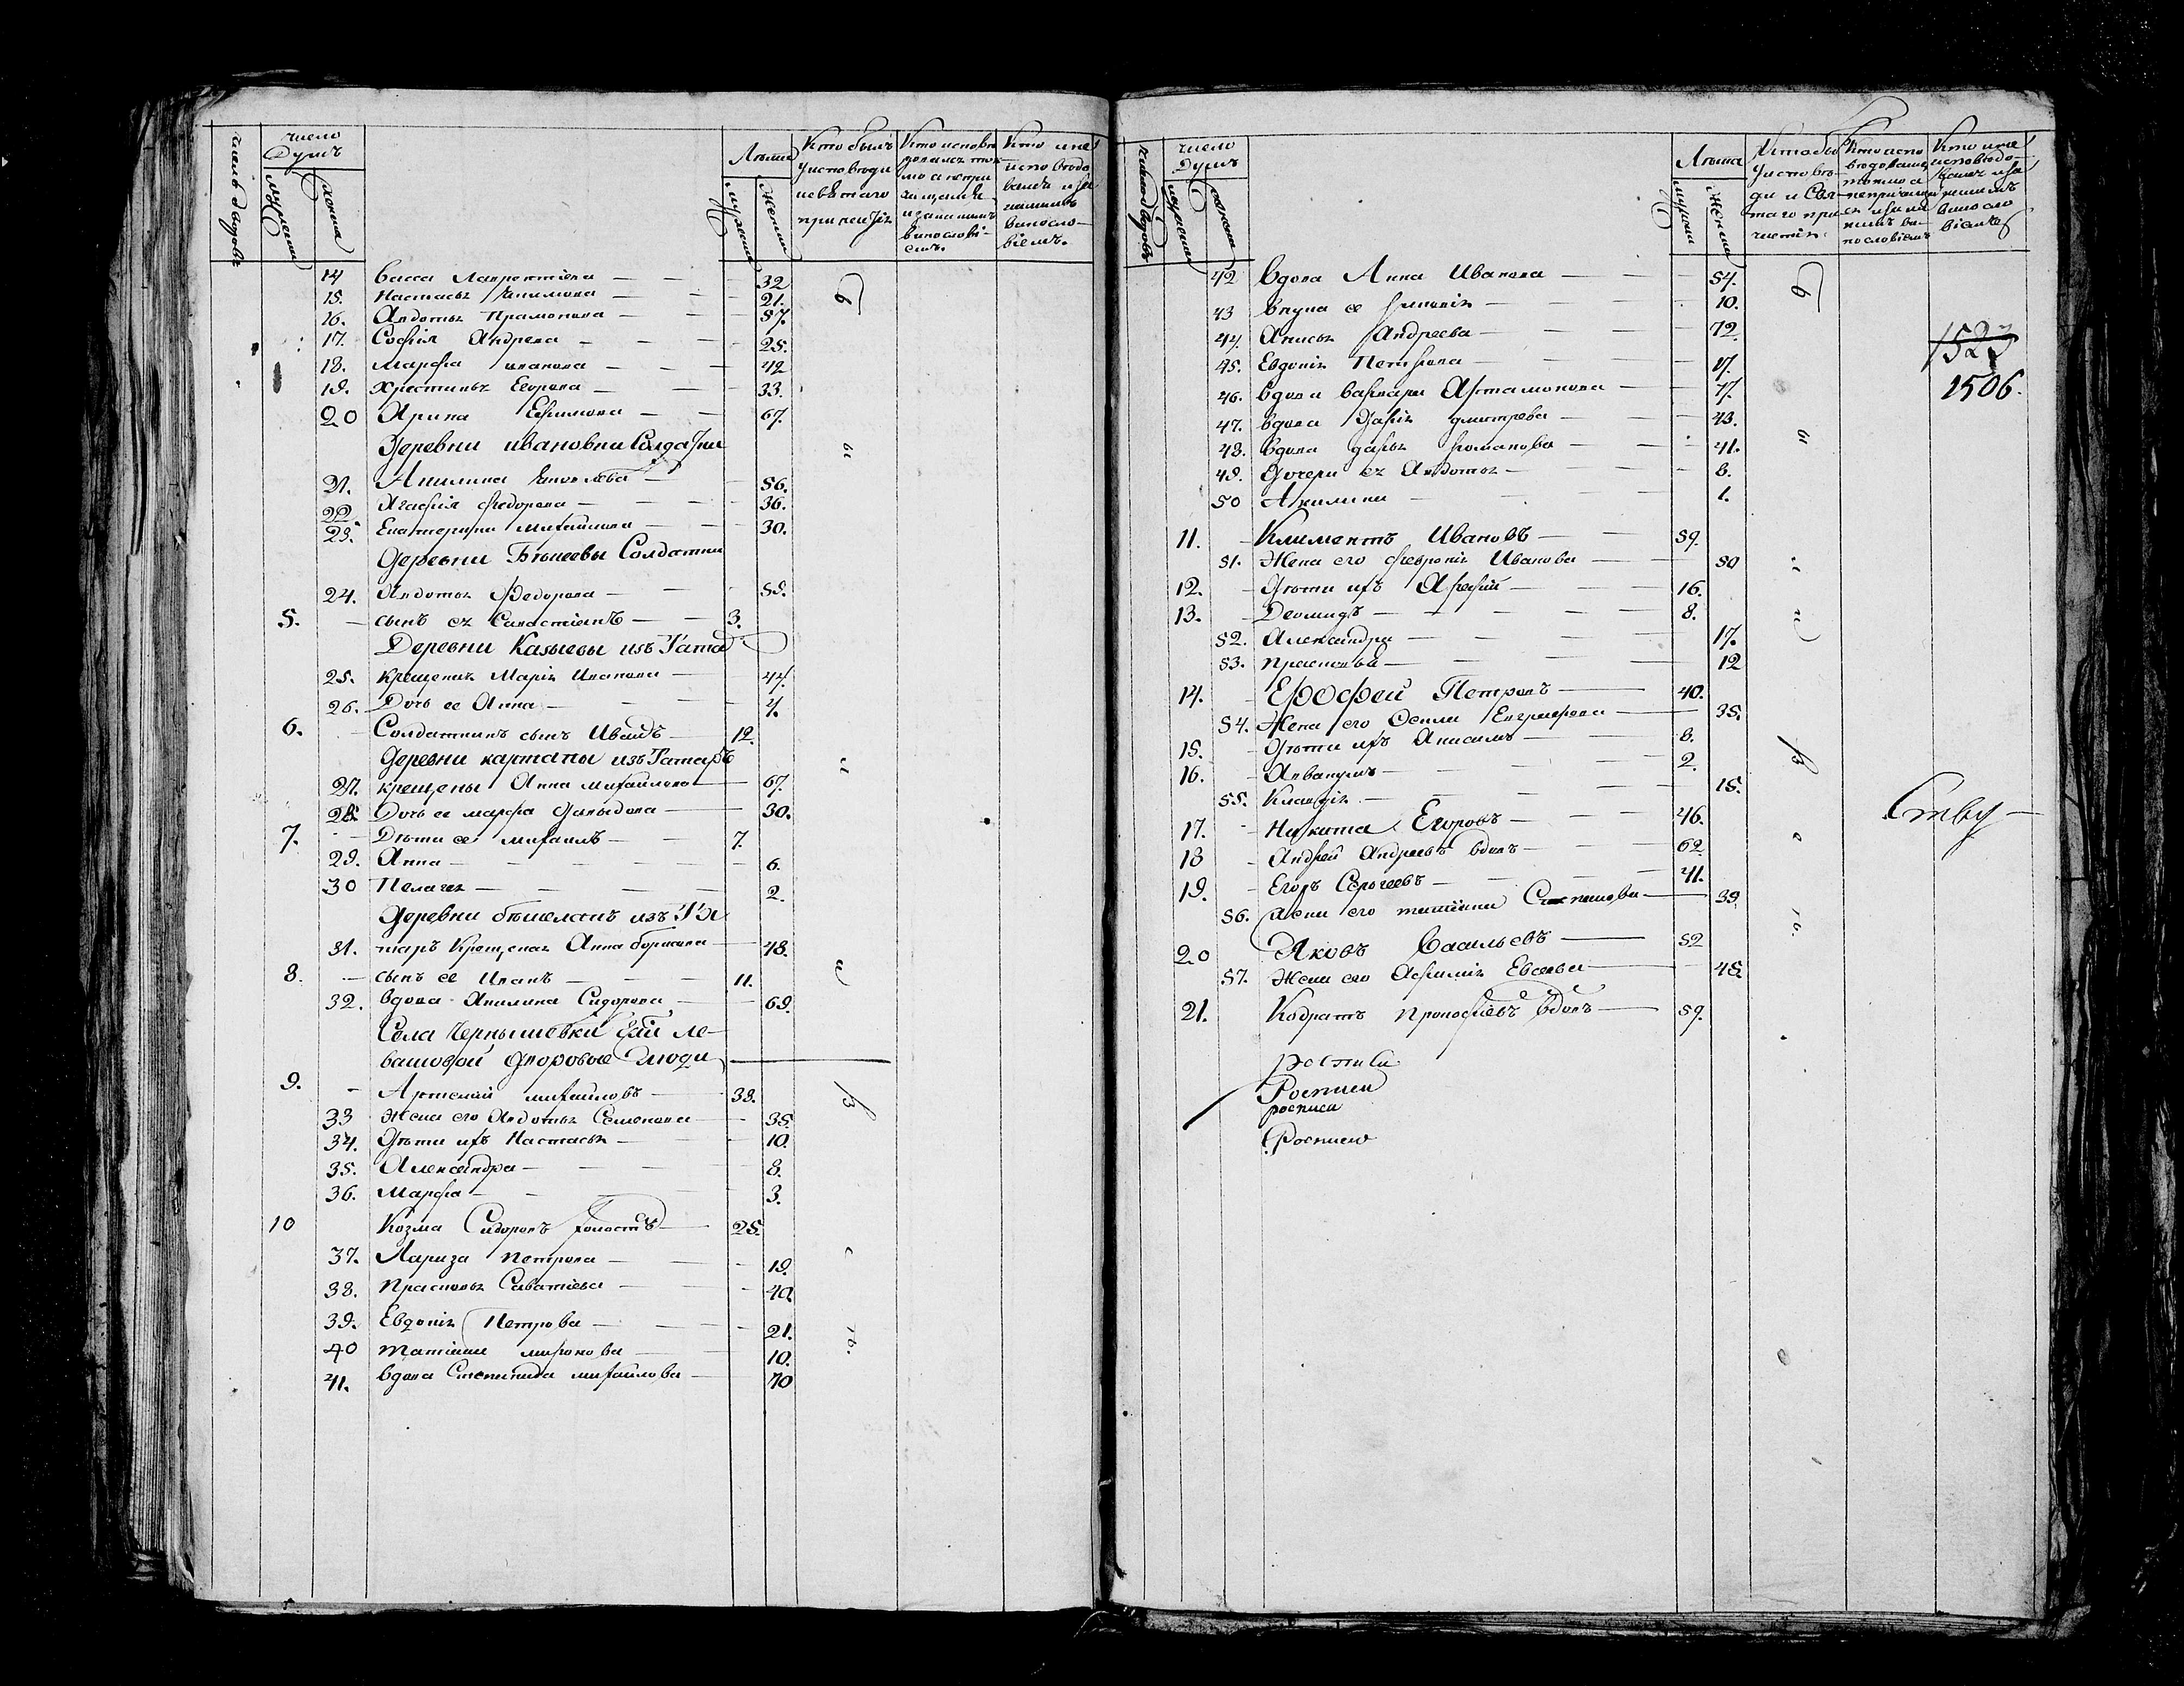 число дворовъ
число
Душъ
мужеска
женска
Лѣта
мужеска
женска
Кто былъ
у исповѣди
и святаго
причастія
Кто исповѣ
вались
Кто и не
исповѣдо
вался и за
какимъ
виносло-
віемъ.
14 Васса Лаврентіева — 32
15. Настасья — 21.
16. Авдотья Парамонова — 57.
17. Софія Андреева — 25.
18. Марфа иванова — 42
19. Христинья Егорова — 33.
20 Арина Ефимова — 67.
Деревни ивановки Солдатки
21. Акилина Яковлева — 56.
22. Агафія Федорова — 36.
23. Екатерина михайлова — 30.
Деревни Солдатки
24. Авдотья Федорова — 55.
5. — сынъ ея Савастіянъ — 3.
Деревни Казыевы изъ Татар
25. крещеная Марія Иванова — 44.
26. Дочь ее Анна — 4.
6. — Солдаткинъ сынъ Иванъ — 12.
Деревни картапы изъ Татаръ
27. крещены Анна михайлова — 67.
28. Дочь ее марфа Давыдова — 30.
7. — Дѣти ее михаилъ — 7.
29. Анна — 6.
30 Пелагея — 2.
Деревни изъ Та
31. таръ Крещеная Анна Борисова — 48.
8. — сынъ ее Иванъ — 11.
32. вдова Акилина Сидорова — 69.
Села Чернышевки Ле-
вашовой дворовые люди
9. — Артемий михайловъ — 39.
33 Жена его Авдотья Семенова — 35.
34. Дѣти ихъ Настасья — 10.
35. Александра — 8.
36. Марфа — 3.
10 Козма Сидоровъ холостъ — 25.
37. Лариза петрова — 19.
38. Прасковья Саватіева — 40.
39. Евдокія Петрова — 21.
40 татіана миронова — 10.
41. вдова Степанида михайлова — 70
число дворовъ
число
Душъ
мужеска
женска
Лѣта
мужеска
женска
Кто бы
у исповѣ-
ди и Свя-
таго при-
частія
Кто испо
вѣдовались
токмо а
не причащ
Кто и не
исповѣдо-
вался и за
какимъ
виносло
віемъ
42 Вдова Анна Иванова — 54.
43 внука ее — 10.
44. Анисья Андреева — 72.
45. Евдокія Петрова — 17.
46. Вдова варвара Артамонова — 77.
47. вдова Дарія дмитрева — 43.
48. вдова дарья романова — 41.
49. Дочери ея Авдотья — 6.
50 Акилина — 1.
11. — Климентъ Ивановъ — 59.
51. Жена его Февронія Иванова — 50
12. — Дѣти ихъ — 16.
13. — Деомидъ — 8.
52. Александра — 17.
53. прасковья — 12
14. — Ерофей Петровъ — 40.
54. Жена его Евграфова — 35.
15. — Дѣти ихъ Анисимъ — 8.
16. — Аввакумъ — 2.
55. Клавдія — 15.
17. — Никита Егоровъ — 46.
18 — Андрей Андреевъ вдовъ — 62
19. — Егоръ Сергеевъ — 41.
56. Жена его татіана Степанова — 39
20 Яковъ Васильевъ — 52
57. Жена его Афимія Евсеева — 45.
21. Кодратъ Прокофіевъ вдовъ — 59.
росписи
Росписи
росписи
Росписю
1506.
Ству —